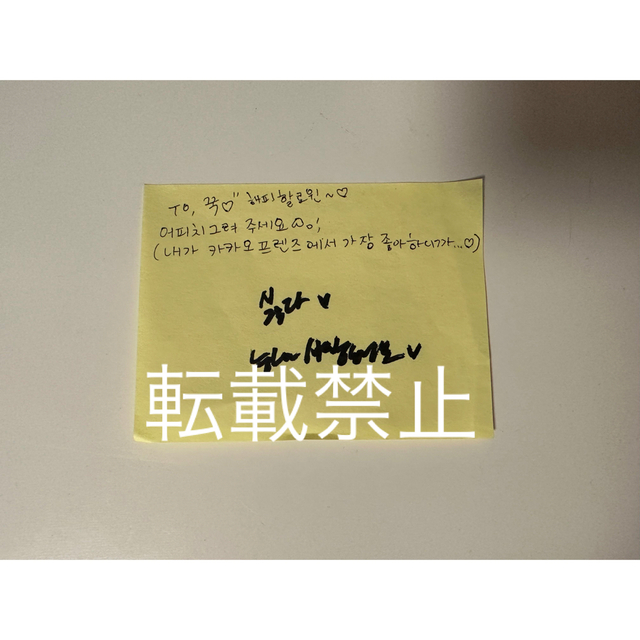 TO, 꾹♡" 해피할로윈~♡
어피치그려 주세요
(내가 카카오프렌즈에서 가장 좋아하니까...♡)
싫다 ♥
♥
転載禁止